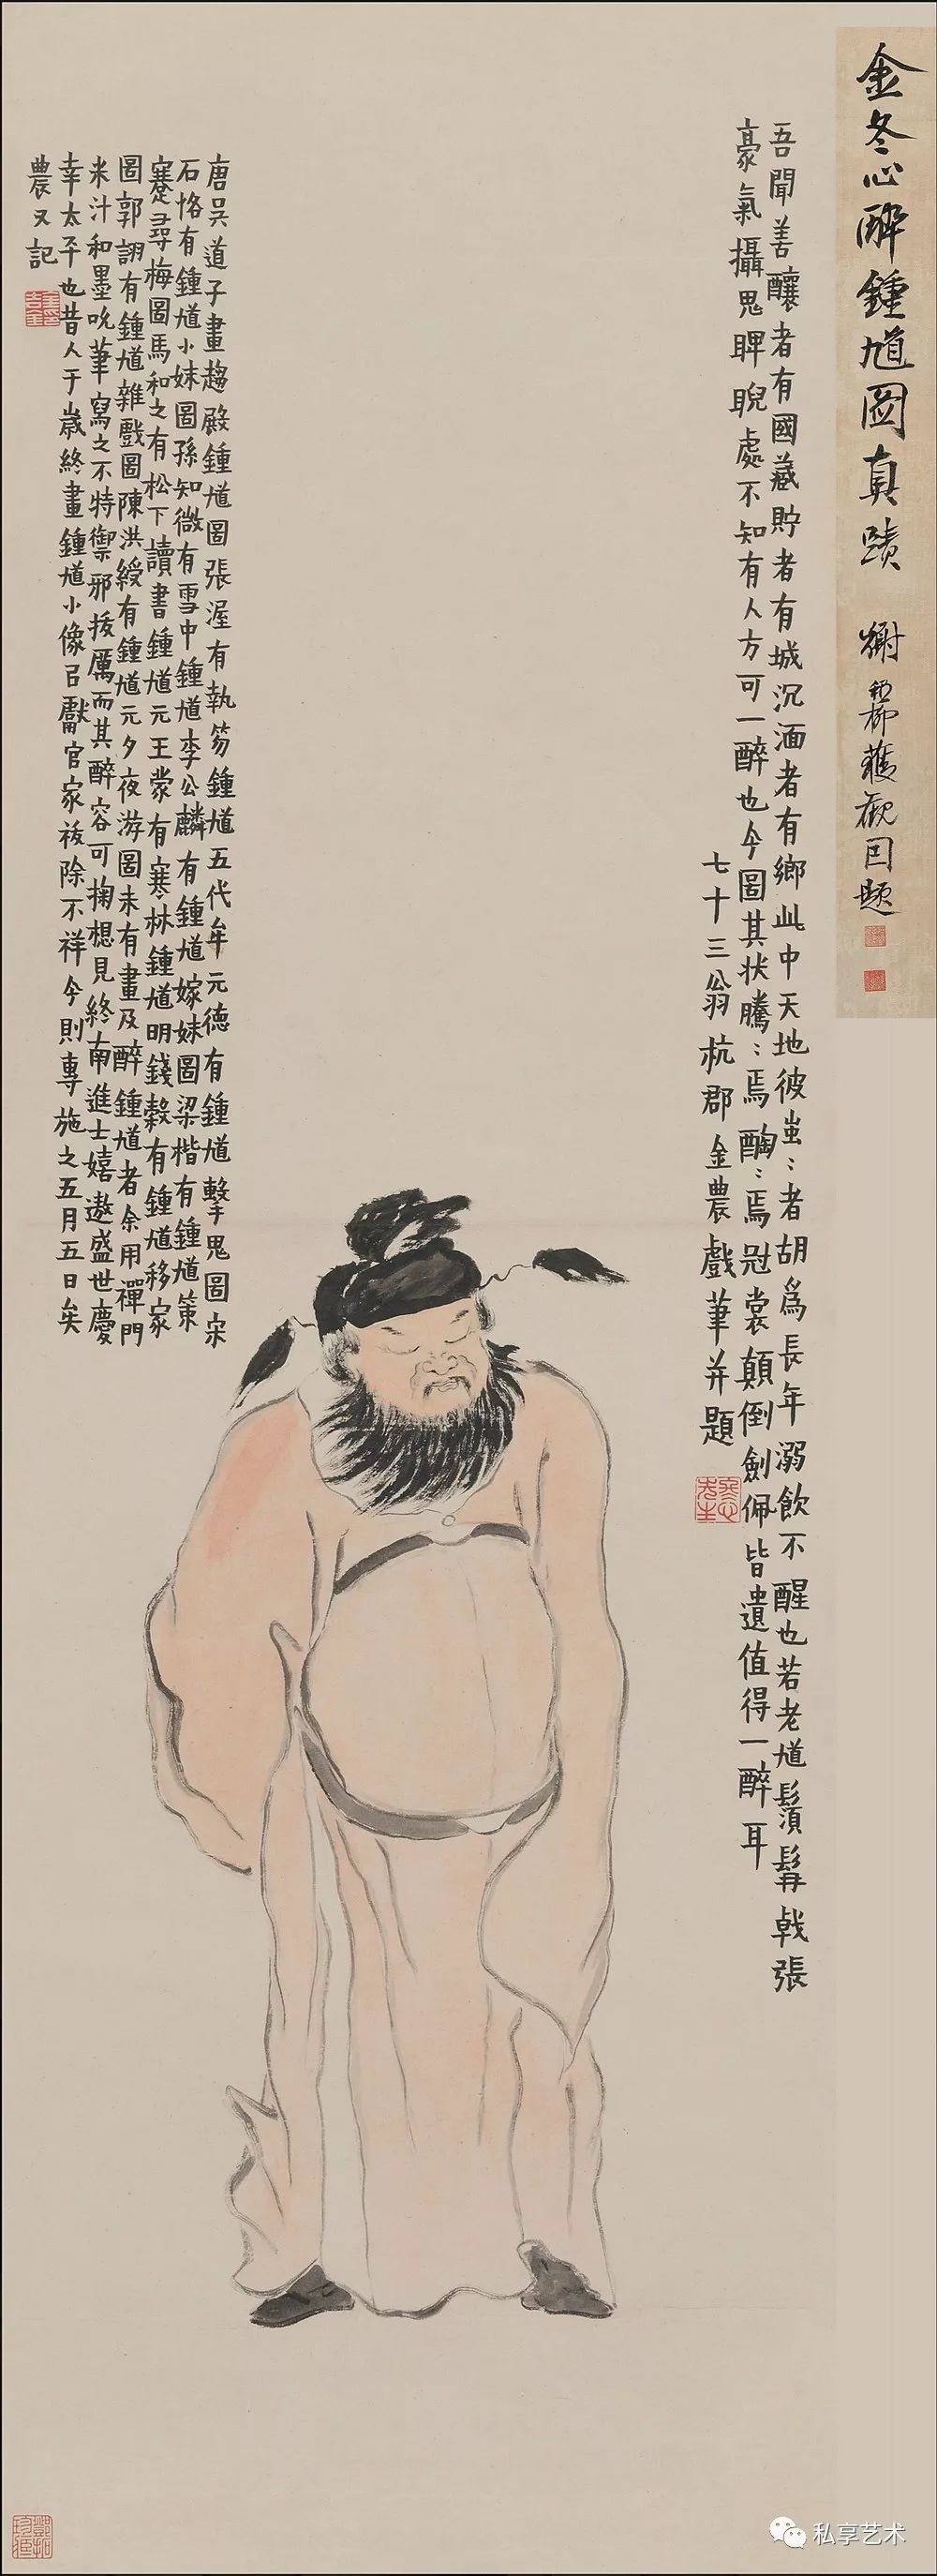 金冬心醉鍾馗圖真蹟
獲觀因題
吾聞善釀者有國藏貯者有城沉湎者有鄉此中天地彼蚩：者胡為長年溺飲不醒也若老馗鬚髯戟張
豪氣攝鬼睥睨處不知有人方可一醉也今圖其狀騰：焉醄：焉冠裳顛倒劍佩皆遺值得一醉耳
七十三翁杭郡金農戲筆并題
唐吳道子畫趨殿鍾馗圖張渥有執笏鍾馗五代牟元德有鍾馗擊鬼圖宋
石恪有鍾馗小妹圖孫知微有雪中鍾馗李公麟有鍾馗嫁妹圖梁楷有鍾馗策
蹇尋梅圖馬和之有松下讀書鍾馗元王蒙有寒林鍾馗明錢穀有鍾馗移家
圖郭詡有鍾馗雜戲圖陳洪綬有鍾馗元夕夜游圖未有畫及醉鍾馗者余用禪門
米汁和墨吮筆寫之不特禦邪拔厲而其醉容可掬想見終南進士嬉遨盛世慶
幸太平也昔人于歲終畫鍾馗小像㠯獻官家祓除不祥今則專施之五月五日矣
農又記
私享艺术